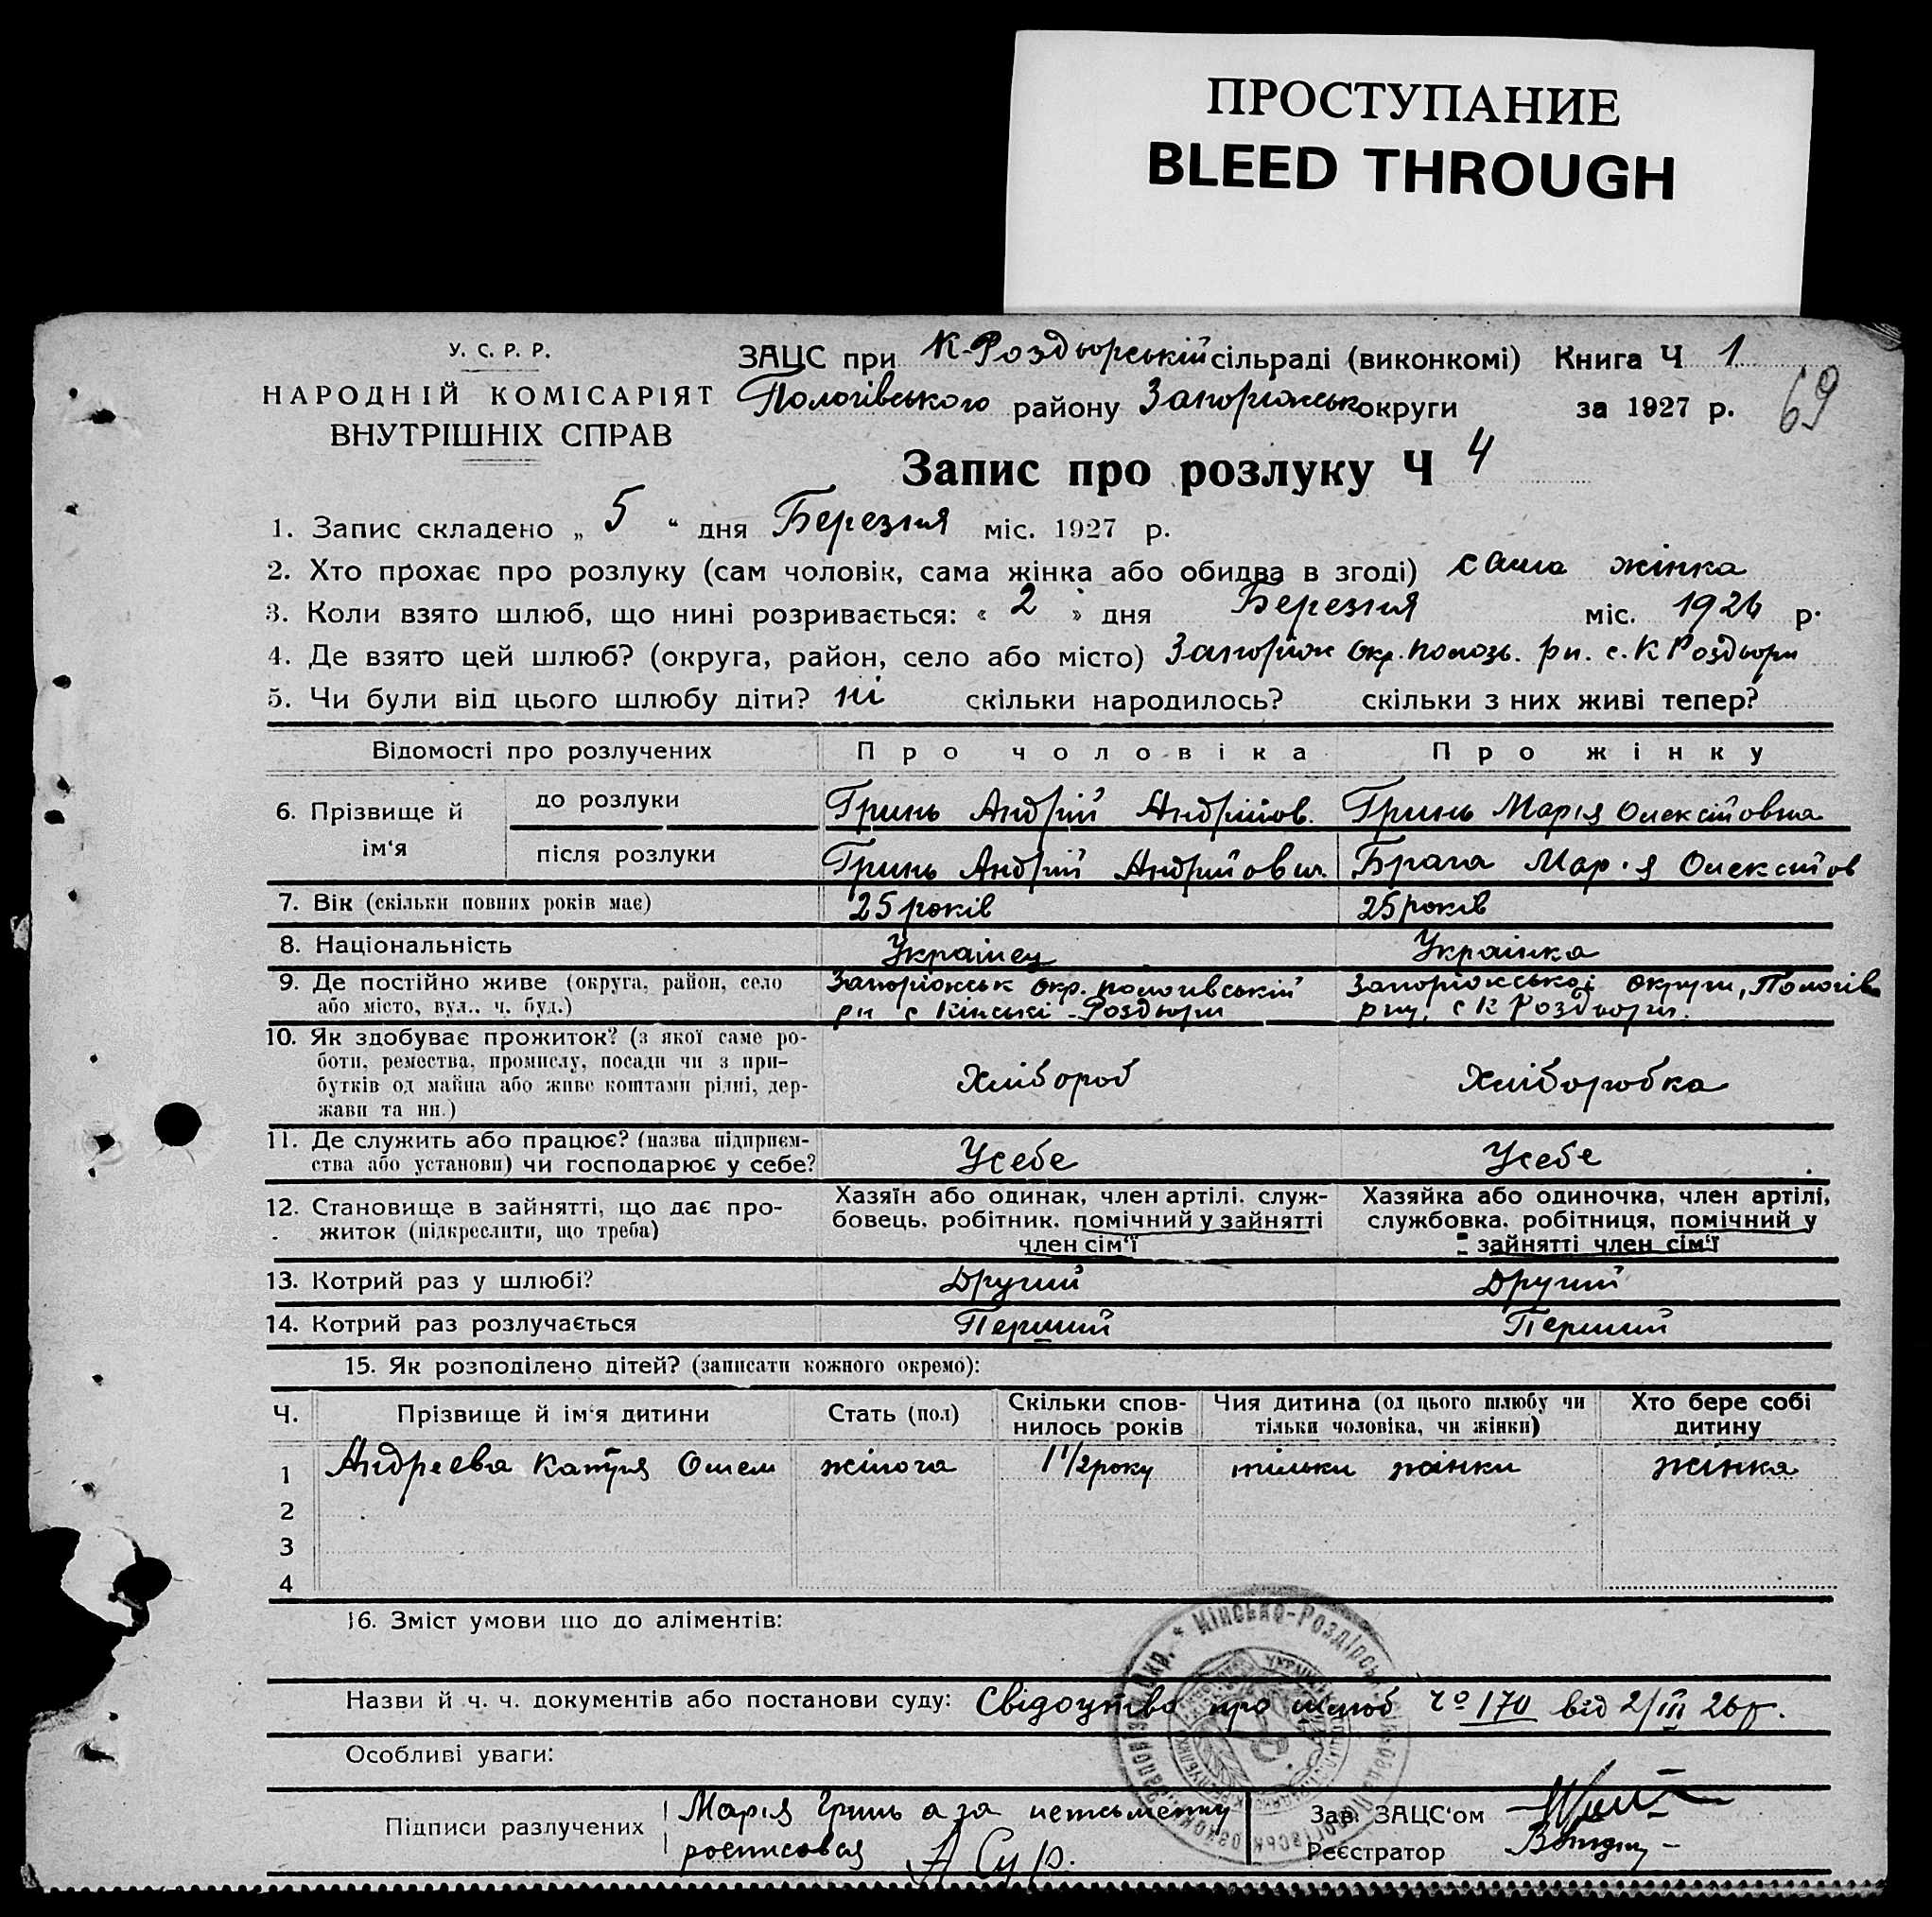 ПРОСТУПАНИЕ
BLEED THROUGH
У. С. Р. Р.
НАРОДНІЙ КОМІСАРІЯТ
ВНУТРІШНІХ СПРАВ
ЗАЦС при К-Роздорській сільраді (виконкомі) Книга Ч 1
Пологівського району Запоріжськ округи за 1927 р.
69
Запис про розлуку Ч 4
1. Запис складено „ 5 “ дня Березня міс. 1927 р.
2. Хто прохає про розлуку (сам чоловік, сама жінка або обидва в згоді) сама жінка
3. Коли взято шлюб, що нині розривається: « 2 » дня Березня міс. 1926 р.
4. Де взято цей шлюб? (округа, район, село або місто) Запоріж Окр. пологв. рн. с. К Роздори
5. Чи були від цього шлюбу діти? ні скільки народилось? скільки з них живі тепер?
Відомості про розлучених Про чоловіка Про жінку
6. Прізвище й ім‘я до розлуки Гринь Андрій Андрійов. Гринь Марія Олексійовна
після розлуки Гринь Андрій Андрійович. Брага Марія Олексійов
7. Вік (скільки повних років має) 25 років 25 років
8. Національність Украінец Украінка
9. Де постійно живе (округа, район, село Запоріжськ окр. пологівській Запоріжськоі округи, Пологів
або місто, вул.. ч. буд.) рн с Кінські-Роздори рну, с К Роздори.
10. Як здобуває прожиток? (з якої саме ро-
боти, ремества, промислу, посади чи з при-
бутків од майна або живе коштами рідні, дер- Хлібороб Хлібопобка
жави та ин.)
11. Де служить або працює? (назва підприєм-
ства або установи) чи господарює у себе? Усебе Усебе
12. Становище в зайнятті, що дає про-
житок (підкреслити, що треба)
Хазяїн або одинак, член артілі. служ-
бовець. робітник. помічний у зайнятті
член сім‘ї
Хазяйка або одиночка, член артілі,
службовка. робітниця, помічний у
зайнятті член сім‘ї
13. Котрий раз у шлюбі? Другий Другий
14. Котрий раз розлучається Перший Перший
15. Як розподілено дітей? (записати кожного окремо):
Ч. Прізвище й ім‘я дитини Стать (пол) Скільки спов-нилось років Чия дитина (од цього шлюбу чи тільки чоловіка, чи жінки) Хто бере собі дитину
1 Андреєва Катря Омел жіноча 1 1/2 року тільки жінки жінка
2
3
4
16. Зміст умови що до аліментів:
Назви й ч. ч. документів або постанови суду: Свідоцтво про шлюб Чо 170 від 2/III 26 р.
Особливі уваги:
Підписи разлучених Марія Гринь а за неписьменну
росписався А Сур.
Зав. ЗАЦС‘ом
Реєстратор